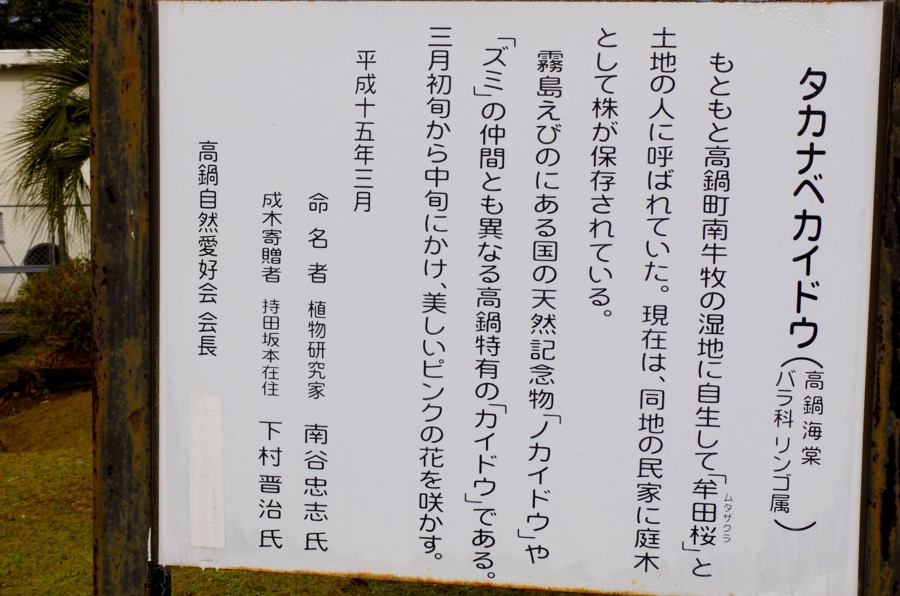 タカナベカイドウ(高鍋海棠 バラ科 リンゴ属)
もともと高鍋町南牛牧の湿地に自生して「牟田桜」と
ムタザクラ
土地の人に呼ばれていた。現在は、同地の民家に庭木
として株が保存されている。
霧島えびのにある国の天然記念物「ノカイドウ」や
「ズミ」の仲間とも異なる高鍋特有の「カイドウ」である。
三月初旬から中旬にかけ、美しいピンクの花を咲かす。
平成十五年三月
命名者 植物研究家 南谷忠志氏
成木寄贈者 持田坂本在住 下村晋治氏
高鍋自然愛好会 会長